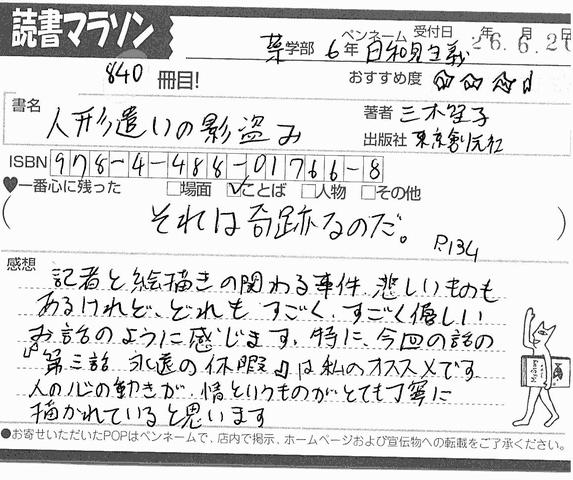 読書マラソン
薬学部 6年 ペンネーム 日和見主義 受付日 26年6月20日
840 冊目! おすすめ度
書名 人形遣いの影盗み 著者 三木笙子
出版社 東京創元社
ISBN 978-4-488-01766-8
♥一番心に残った □場面 ☑ことば □人物 □その他
(それは奇跡なのだ。 P.134)
感想
記者と絵描きの関わる事件 悲しいものも
あるけれど、どれも すごく、すごく優しい
お話のように感じます。特に、今回の話の
『第三話 永遠の休暇』は私のオススメです
人の心の動きが、情というものがとても丁寧に
描かれていると思います
●お寄せいただいたPOPはペンネームで、店内で掲示、ホームページおよび宣伝物への転載をご了承ください。